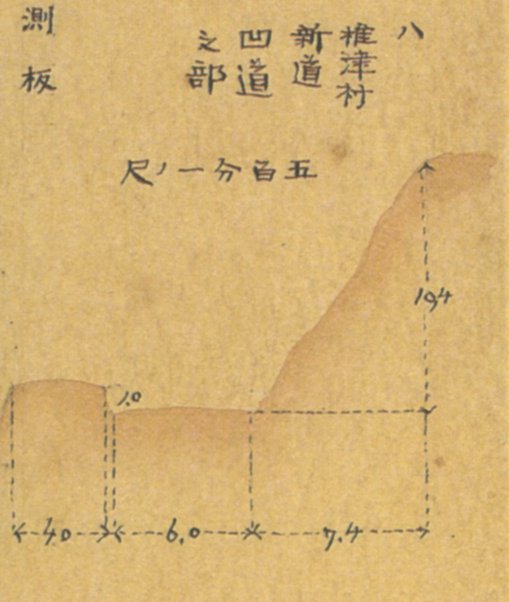 八
椎津村
新道
凹道
之部
測板
五百分一ノ尺
10,4
1.0
4.0
6.0
7.4